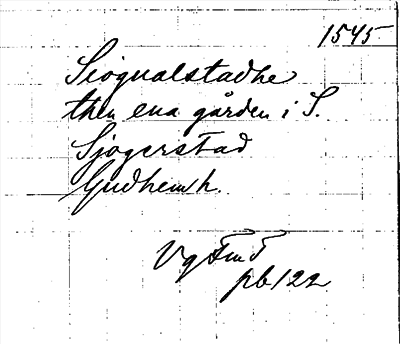 1545
Siogualstadhe
then ena gården i S.
Sjögerstad
Gudhem h.
Vg
pb 122